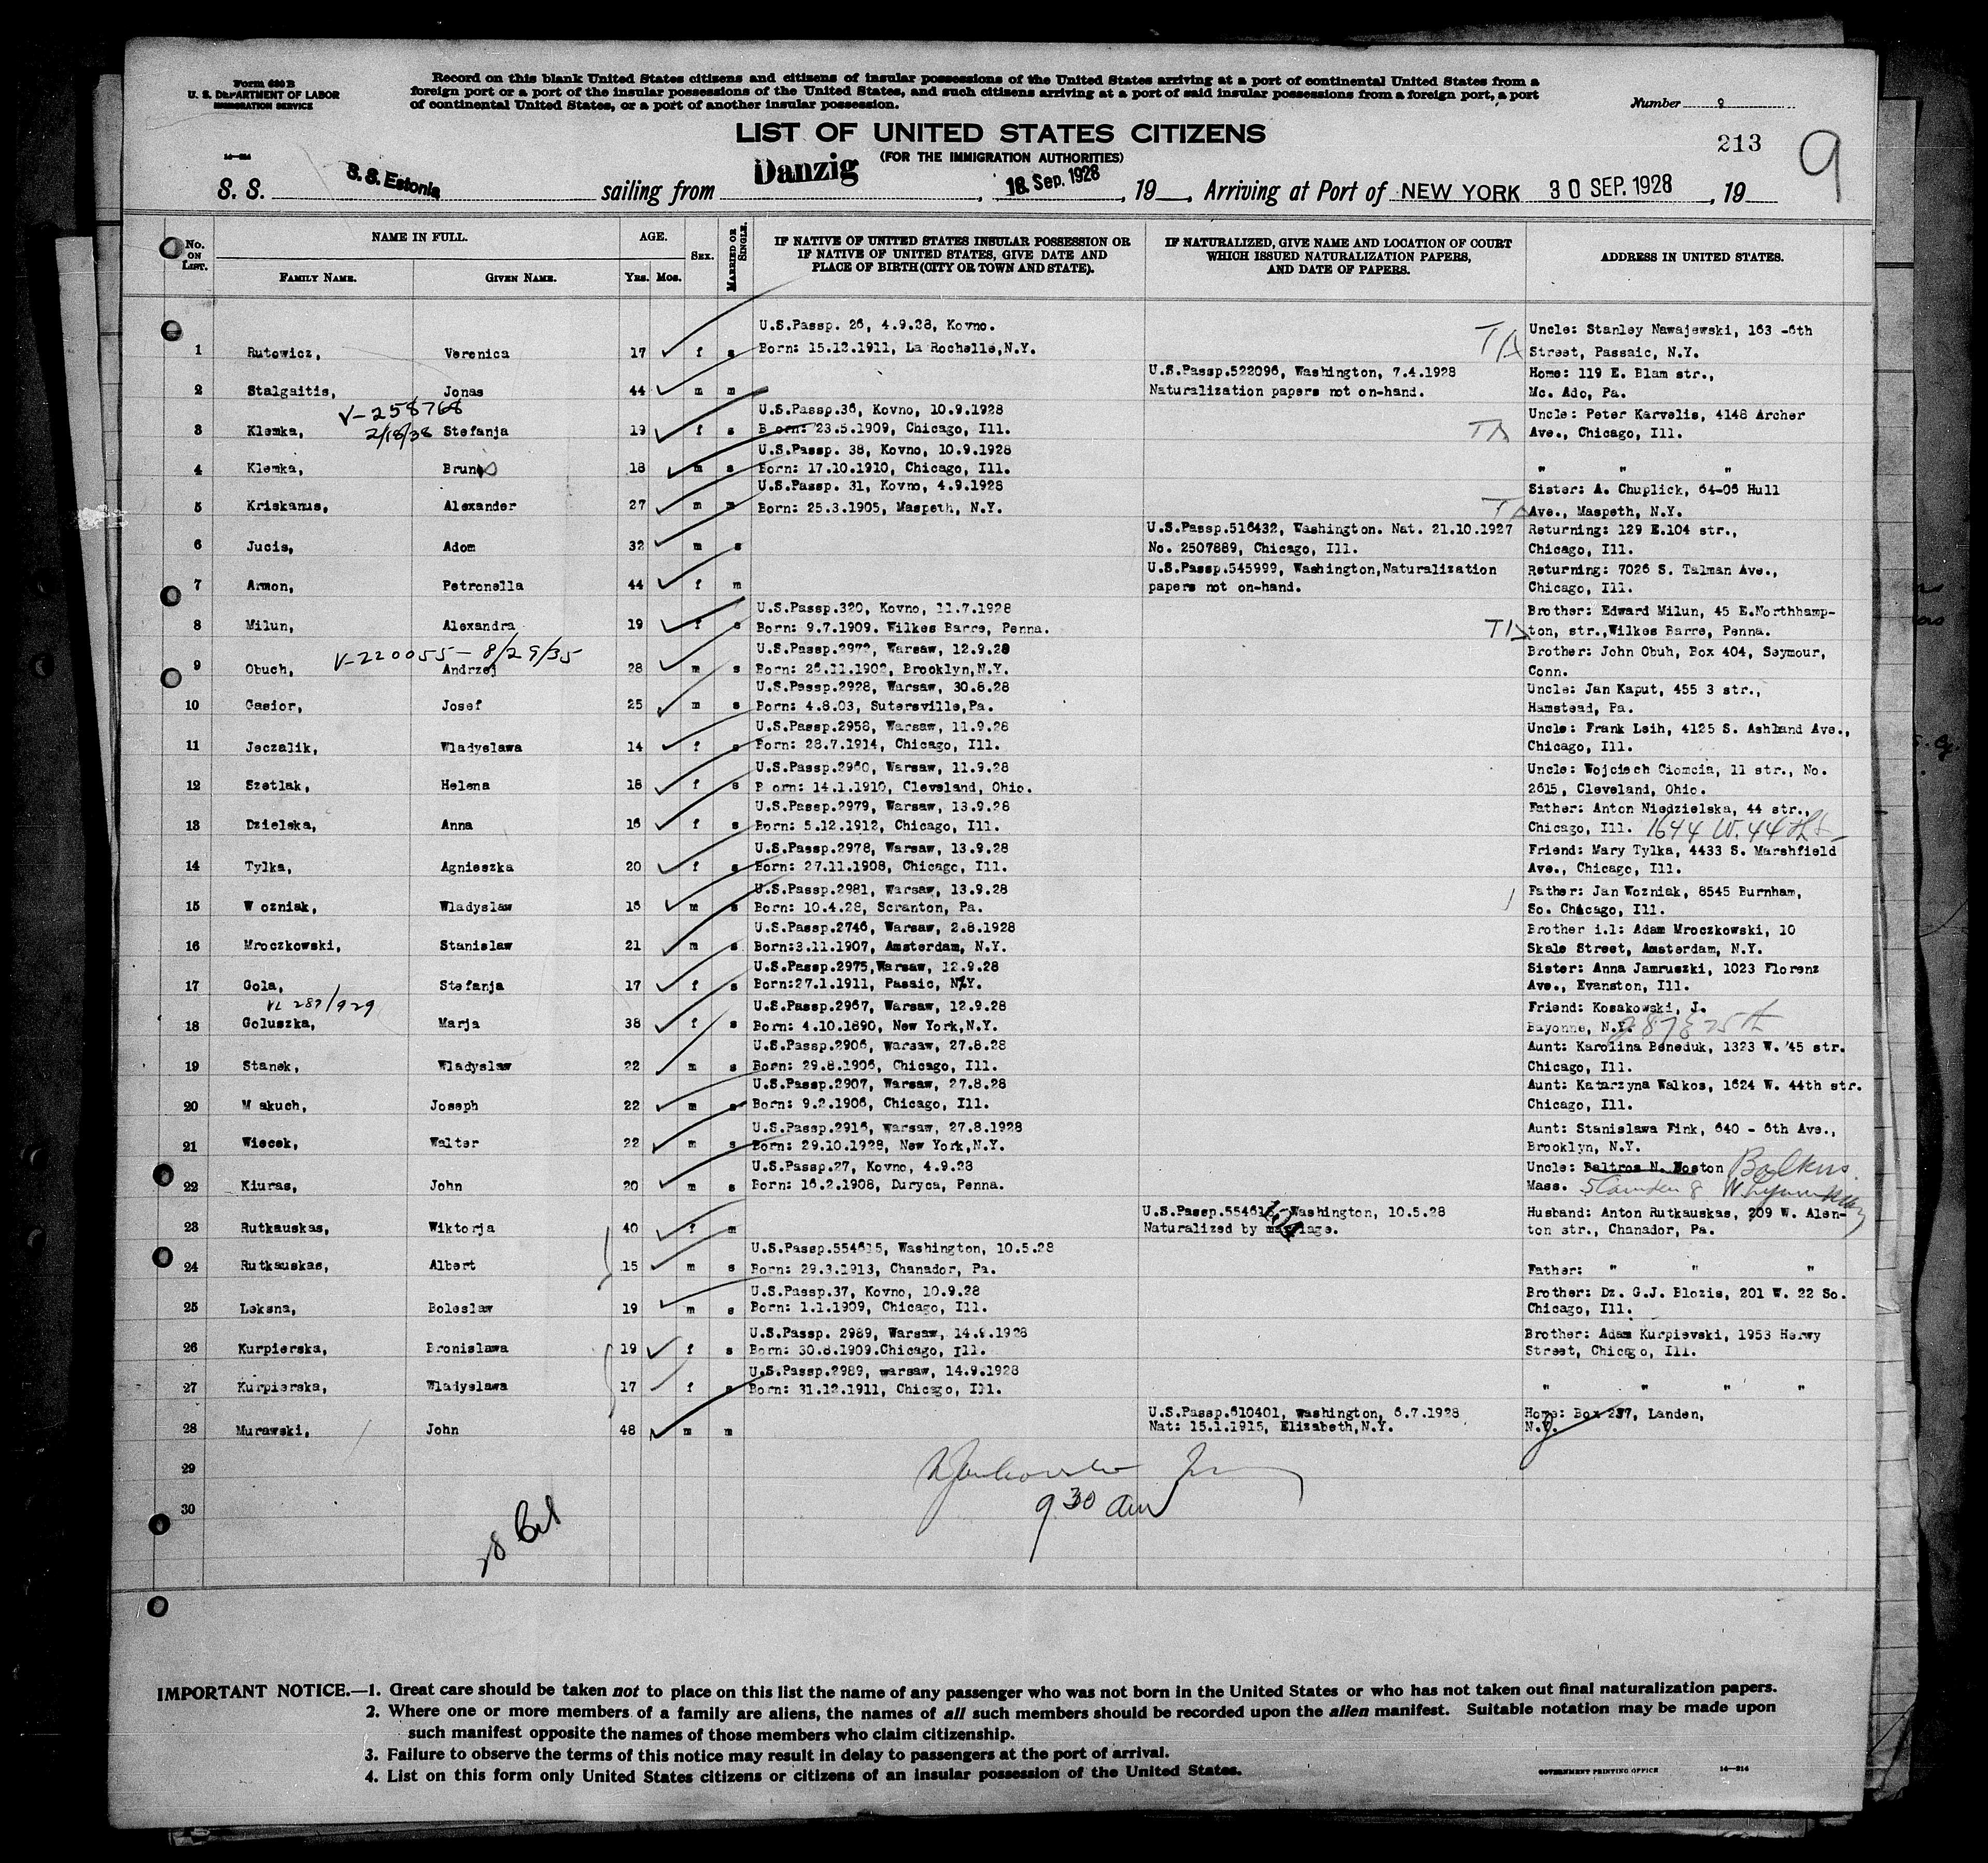 Form 630 B
U. S. DEPARTMENT OF LABOR
IMMIGRATION SERVICE
Record on this blank United States citizens and citizens of insular possessions of the United States arriving at a port of continental United States from a
foreign port or a port of the insular possessions of the United States, and such citizens arriving at a port of said insular possessions from a foreign port, a port
of continental United States, or a port of another insular possession.
Number 9
LIST OF UNITED STATES CITIZENS
(FOR THE IMMIGRATION AUTHORITIES)
213
9
14—214
S. S. S. S. Estonia sailing from Danzig, 18. Sep. 1928, 19 , Arriving at Port of NEW YORK 30 SEP. 1928, 19
No. ON LIST.
NAME IN FULL.
FAMILY NAME.
GIVEN NAME.
AGE.
YRS. MOS.
SEX.
MARRIED OR SINGLE.
IF NATIVE OF UNITED STATES INSULAR POSSESSION OR
IF NATIVE OF UNITED STATES, GIVE DATE AND
PLACE OF BIRTH (CITY OR TOWN AND STATE).
IF NATURALIZED, GIVE NAME AND LOCATION OF COURT
WHICH ISSUED NATURALIZATION PAPERS,
AND DATE OF PAPERS.
ADDRESS IN UNITED STATES.
U.S.Passp. 26, 4.9.28, Kovno. Uncle: Stanley Nawajewski, 163 -6th
1 Rutowicz, Veronica 17 f s Born: 15.12.1911, La Rochelle,N.Y. TA Street, Passaic, N.Y.
U.S.Passp.522096, Washington, 7.4.1928 Home: 119 E. Blam str.,
2 Stalgaitis, Jonas 44 m m Naturalization papers not on-hand. Mc. Ado, Pa.
V-258768 U.S.Passp.36, Kovno, 10.9.1928 Uncle: Peter Karvelis, 4148 Archer
3 Klemka, 2/18/38 Stefanja 19 f s B orn: 23.5.1909, Chicago, Ill. TA Ave., Chicago, Ill.
U.S.Passp. 38, Kovno, 10.9.1928
4 Klemka, Bruno 18 m s Born: 17.10.1910, Chicago, Ill. " " "
U.S.Passp. 31, Kovno, 4.9.1928 Sister: A. Chuplick, 64-06 Hull
5 Kriskanus, Alexander 27 m m Born: 25.3.1905, Maspeth, N.Y. TA Ave., Maspeth, N.Y.
U.S.Passp.516432, Washington. Nat. 21.10.1927 Returning: 129 E.104 str.,
6 Jucis, Adom 32 m s No. 2507889, Chicago, Ill. Chicago, Ill.
U.S.Passp.545999, Washington,Naturalization Returning: 7026 S. Talman Ave.,
7 Armon, Petronella 44 f m papers not on-hand. Chicago, Ill.
U.S.Passp.320, Kovno, 11.7.1928 Brother: Edward Milun, 45 E.Northhamp-
8 Milun, Alexandra 19 f s Born: 9.7.1909. Wilkes Barre, Penna. TA ton, str.,Wilkes Barre, Penna.
V-220055 - 8/29/35 U.S.Passp.2972, Warsaw, 12.9.28 Brother: John Obuh, Box 404, Seymour,
9 Obuch, Andrzej 28 m s Born: 26.11.1902, Brooklyn,N.Y. Conn.
U.S.Passp.2928, Warsaw, 30.8.28 Uncle: Jan Kaput, 455 3 str.,
10 Gasior, Josef 25 m s Born: 4.8.03, Sutersville,Pa. Hamstead, Pa.
U.S.Passp.2958, Warsaw, 11.9.28 Uncle: Frank Leih, 4125 S. Ashland Ave.,
11 Jeczalik, Wladyslawa 14 f s Born: 28.7.1914, Chicago, Ill. Chicago, Ill.
U.S.Passp.2960, Warsaw, 11.9.28 Uncle: Wojciech Ciomcia, 11 str., No.
12 Szetlak, Helena 18 f s B orn: 14.1.1910, Cleveland, Ohio. 2615, Cleveland, Ohio.
U.S.Passp.2979, Warsaw, 13.9.28 Father: Anton Niedzielska, 44 str.,
13 Dzielska, Anna 16 f s Born: 5.12.1912, Chicago, Ill. Chicago, Ill. 1644 W. 44th St
U.S.Passp.2978, Warsaw, 13.9.28 Friend: Mary Tylka, 4433 S. Marshfield
14 Tylka, Agnieszka 20 f s Born: 27.11.1908, Chicago, Ill. Ave., Chicago, Ill.
U.S.Passp.2981, Warsaw, 13.9.28 Father: Jan Wozniak, 8545 Burnham,
15 W ozniak, Wladyslaw 16 m s Born: 10.4.28, Scranton, Pa. So. Chicago, Ill.
U.S.Passp.2746, Warsaw, 2.8.1928 Brother i.l: Adam Mroczkowski, 10
16 Mroczkowski, Stanislaw 21 m s Born:3.11.1907, Amsterdam, N.Y. Skale Street, Amsterdam, N.Y.
U.S.Passp.2975,Warsaw, 12.9.28 Sister: Anna Jamruszki, 1023 Florenz
17 Gola, Stefanja 17 f s Born:27.1.1911, Passic, N.Y. Ave., Evanston, Ill.
VL 287/929 U.S.Passp.2967, Warsaw, 12.9.28 Friend: Kosakowski, J.
18 Goluszka, Marja 38 f s Born: 4.10.1890, New York,N.Y. Bayonne, N.Y.
U.S.Passp.2906, Warsaw, 27.8.28 Aunt: Karolina Beneduk, 1323 W. 45 str.
19 Stanek, Wladyslaw 22 m s Born: 29.8.1906, Chicago, Ill. Chicago, Ill.
U.S.Passp.2907, Warsaw, 27.8.28 Aunt: Katarzyna Walkos, 1624 W. 44th str.
20 M akuch, Joseph 22 m s Born: 9.2.1906, Chicago, Ill. Chicago, Ill.
U.S.Passp.2916, Warsaw, 27.8.1928 Aunt: Stanislawa Fink, 640 - 6th Ave.,
21 Wiecek, Walter 22 m s Born: 29.10.1928, New York,N.Y. Brooklyn, N.Y.
U.S.Passp.27, Kovno, 4.9.28 Uncle: Baltros N. Boston
22 Kiuras, John 20 m s Born: 16.2.1908, Duryca, Penna. Mass.
U.S.Passp. Washington, 10.5.28 Husband: Anton Rutkauskas, 209 W. Alen-
23 Rutkauskas, Wiktorja 40 f m Naturalized by marriage. ton str., Chanador, Pa.
U.S.Passp.554615, Washington, 10.5.28
24 Rutkauskas, Albert 15 m s Born: 29.3.1913, Chanador, Pa. Father: " " "
U.S.Passp.37, Kovno, 10.9.28 Brother: Dz. G.J. Blozis, 201 W. 22 So.
25 Leksna, Boleslaw 19 m s Born: 1.1.1909, Chicago, Ill. Chicago, Ill.
U.S.Passp. 2989, Warsaw, 14.9.1928 Brother: Adam Kurpievski, 1953 Herwy
26 Kurpierska, Bronislawa 19 f s Born: 30.8.1909.Chicago, Ill. Street, Chicago, Ill.
U.S.Passp.2989, warsaw, 14.9.1928
27 Kurpierska, Wladyslawa 17 f s Born: 31.12.1911, Chicago, Ill. " " " "
U.S.Passp.610401, Washington, 6.7.1928 Home: Box 237, Landen,
28 Murawski, John 48 m m Nat: 15.1.1915, Elizabeth,N.Y. N.Y.
29
30
9 30 am
IMPORTANT NOTICE.—1. Great care should be taken not to place on this list the name of any passenger who was not born in the United States or who has not taken out final naturalization papers.
2. Where one or more members of a family are aliens, the names of all such members should be recorded upon the alien manifest. Suitable notation may be made upon
such manifest opposite the names of those members who claim citizenship.
3. Failure to observe the terms of this notice may result in delay to passengers at the port of arrival.
4. List on this form only United States citizens or citizens of an insular possession of the United States.
GOVERNMENT PRINTING OFFICE 14—214